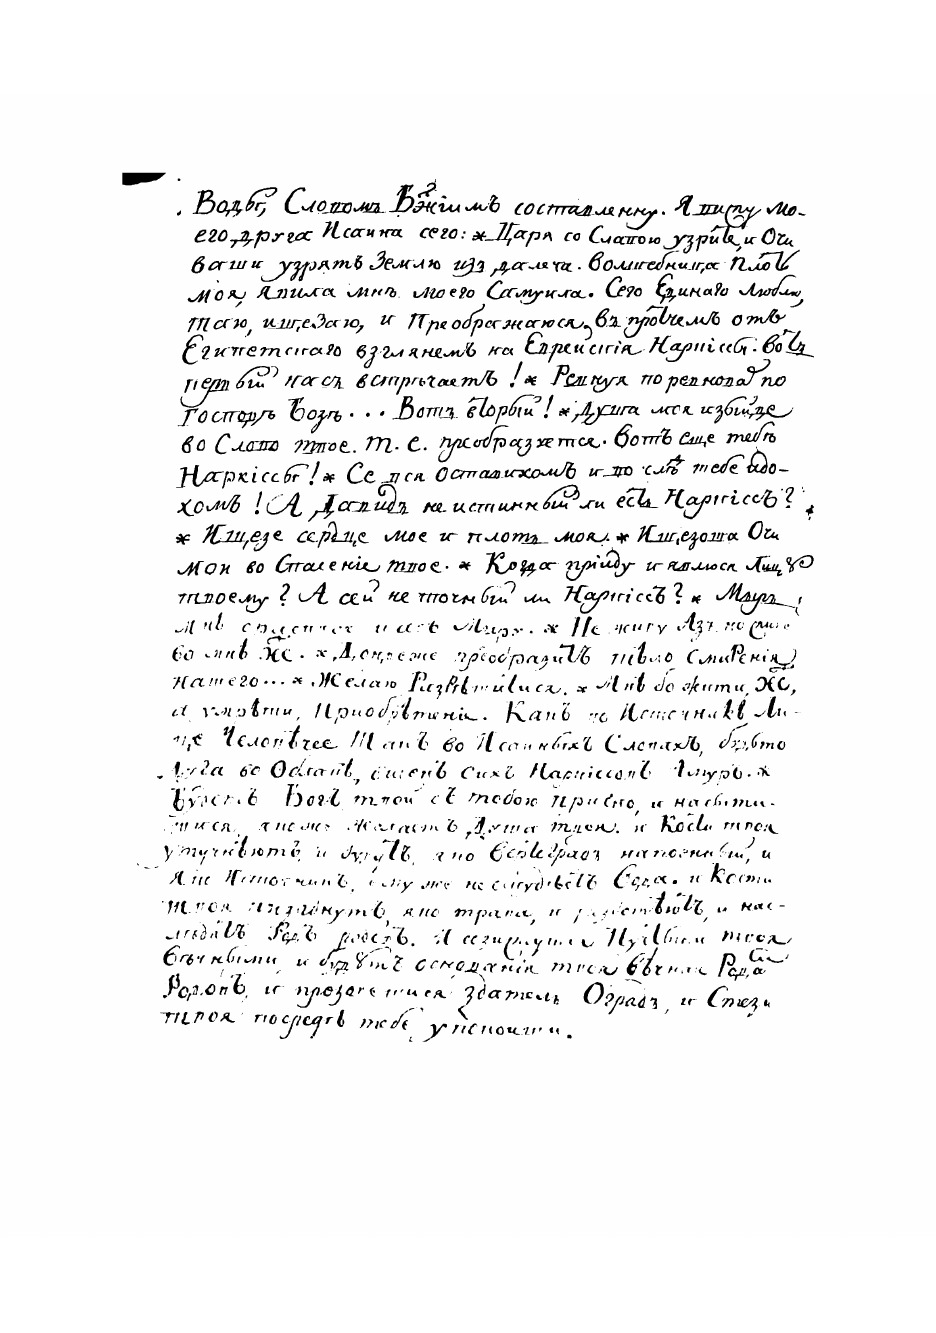 Воды, Словомъ Бжіимъ составленну. Я вижу мо-
его друга Исаина сего: * Царя со Славою узрите, и Очи
ваши узрятъ Землю изъ далеча. Волшебница Плоть
моя, явила мнѣ моего Самуила. Сего Единаго люблю,
таю, ищезаю, и Преображаюся. въ протчемъ отъ
Египетскаго взглянемъ на Еврейскія Наркіссы. Вотъ
первый насъ встрѣчаетъ! * Ревнуя поревновахъ по
Господѣ Бозѣ... Вотъ вторый! * Душа моя изыйде
во Слово твое. т. е. преобразуется. Вотъ еще тебѣ
Наркіссы! * Се вся оставихомъ и во слѣдъ тебе идо-
хомъ! А Давидъ не истинный ли есть Наркіссъ?
* Ищезе сердце мое и плоть моя. * Ищезоша Очи
мои во Спасеніе твое. * Когда прійду и явлюся Лицу
твоему? А сей не точный ли Наркіссъ? * Міръ
Мнѣ сраспятся и азъ Міру. * Не живу Азъ, но живетъ
во мнѣ Хс. * Дондеже преобразитъ тѣло Смиренія
нашего... * Желаю Разрѣшитися. * Мнѣ бо жити, Хс,
а умрѣти, Пріобрѣтеніе. Какъ во Источникѣ Ли-
це Человѣчее Такъ во Исаиныхъ Словахъ, будьто
Дуга во Облакѣ, виденъ сихъ Наркіссовъ Амуръ. *
Будетъ Богъ твой съ тобою присно, и насыти-
шися, якоже желаетъ Душа твоя. и Кости твоя
утучнѣютъ и будутъ, яко Вертоградъ напоенный, и
яко Источникъ, ему же не оскудѣетъ Вода. и Кости
твоя прозябнутъ, яко трава, и разботѣютъ, и нас-
лѣдятъ Родъ родовъ. И созиждутся Пустыни твоя
Вѣчныими, и будутъ основанія твоя вѣчная Родомъ
Родовъ, и прозовешися здатель Оградъ, и Стези
твоя посредѣ тебе упокоиши.